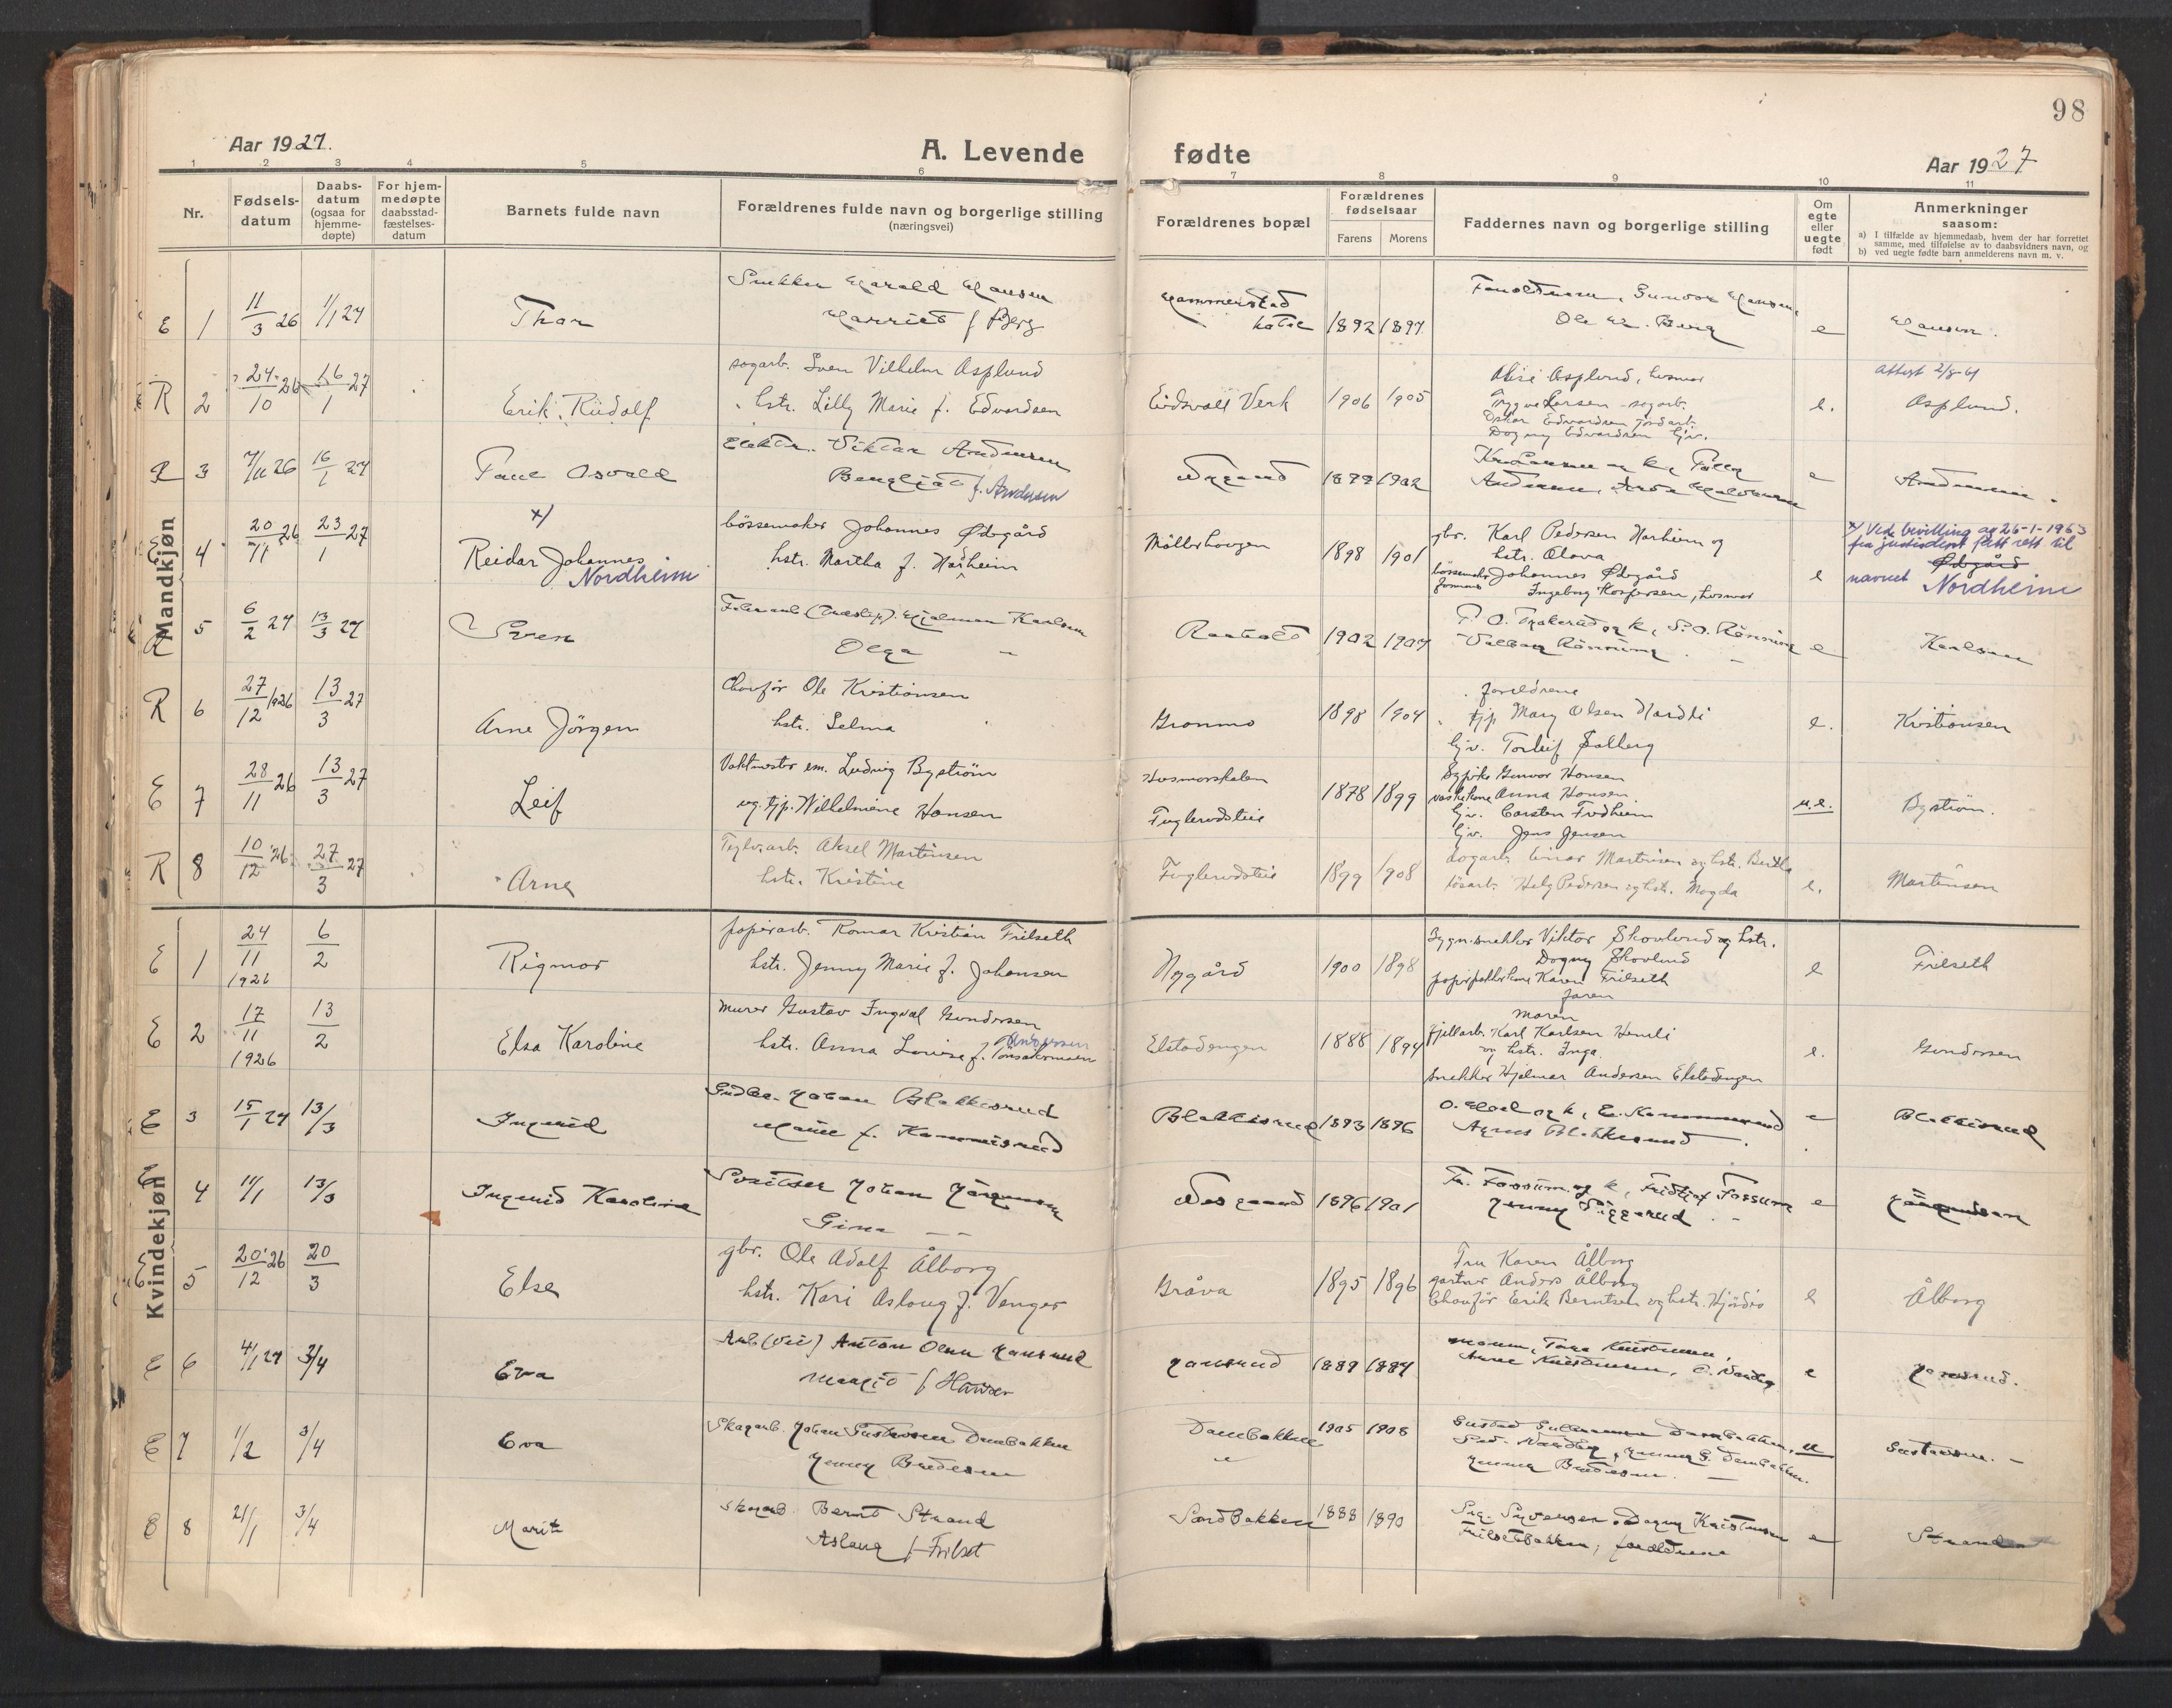 98
Aar 1927.
A. Levende fødte
Aar 1927
1 2 3 4 5 6 7 8 9 10 11
Nr.
Fødsels-
datum
Daabs-
datum
(ogsaa for
hjemme-
døpte)
For hjem-
medøpte
daabsstad-
fæstelses-
datum
Barnets fulde navn
Forældrenes fulde navn og borgerlige stilling
(næringsvei)
Forældrenes bopæl
Forældrenes
fødselsaar
Farens Morens
Faddernes navn og borgerlige stilling
Om
egte
eller
uegte
født
Anmerkninger
saasom:
a) I tilfælde av hjemmedaab, hvem der har forrettet
samme, med tilføielse av to daabsvidners navn, og
b) ved uegte fødte barn anmelderens navn m. v.
Mandkjøn
E 1 11/3 26 1/1 27 Thor
Snekker Harald Hansen
Harriet f. Berg
Hammerstad
1892 1897
Forældrene, Gunvor Hansen,
Ole H. Berg
e Hansen.
R 2 24/10 26 16/1 27 Erik Rüdolf
sagarb. Sven Vilhelm Asplund
hstr. Lilly Marie f. Edvardsen
Eidsvoll Verk 1906 1905
Alise Asplund, husmor
Trygve Larsen sagarb.
Oskar Edvardsen jordarb.
Dagny Edvardsen tjv.
e. Attest 2/8-61
Asplund.
R 3 7/11 26 16/1 27 Paul Osvald
Elektr. Viktor Andersen
Bergljot f. Andersen
1902
e Andersen.
E 4 20/11 26 23/1 27 x) Reidar Johannes
Nordheim
bössemaker Johannes Ødegård
hstr. Martha f. Nordheim
Möllerhaugen 1898 1901
gbr. Karl Pedersen Narheim og
hstr. Olava
bössemaker Johannes Ødegård
Ingeborg Kaspersen, husmor
e x) Ved bevilling av 26-1-1963
fra justisdept fått rett til
navnet Ødegård
Nordheim
R 5 6/2 27 13/3 27 Sven
Hjalmar Karlsen
Olga "
Raaholt 1902 1904
e Karlsen
R 6 27/12 1926 13/3 27 Arne Jörgen
Chauför Ole Kristiansen
hstr. Selma
Gronmo 1898 1904
foreldrene
tjp. Mary Olsen Nordli
tjv. Torleif Solberg
e. Kristiansen
E 7 28/11 26 13/3 27 Leif
Vaktmester em. Ludvig Byström
ug. tjp. Wilhelmine Hansen
Husmorskolen
Fuglerudsteie
1878 1899
Sypike Gunvor Hansen
vaskekone Anna Hansen
tjv. Carsten Frodheim
tjv. Jens Jensen
u.e. Byström.
R 8 10/12 26 27/3 27 Arne
Teglv.arb. Aksel Martinsen
hstr. Kristine
Fuglerudsteie 1899 1908
sagarb. Einar Martinsen og hstr. Bertha
lösarb. Helg Pedersen og hstr. Magda
e. Martinsen
Kvindekjøn
E 1 24/11 1926 6/2 Rigmor
papirarb. Romar Kristian Frilseth
hstr. Jenny Marie f. Johansen
Nygård 1900 1898
Bygn.snekker Viktor Skovlund og hstr.
Dagny Skovlund
Karen Frilseth
faren
e Frilseth
E 2 17/11 1926 13/2 Elsa Karoline
murer Gustav Ingval Gundersen
hstr. Anna Lovise f. Andersen
Elstadengen 1888 1894
moren
fjellarb. Karl Karlsen Homli
og hstr. Inga.
snekker Hjalmar Andersen Elstadengen
e. Gundersen
E 3 15/1 27 13/3 Ingerid
Gudbr. Johan Blakkisrud
Marie f. Kammerud
Blakkisrud 1893 1896
Agnes Blakkisrud.
e Blakkisrud
E 4 11/1 13/3 Ingerid Karoline
Johan Jörgensen
Gina " "
1896 1901
Fr. Fossum og k, Fridtjof Fossum
Jenny
e Jörgensen
E 5 20/12 26 20/3 Else
gbr. Ole Adolf Ålborg
hstr. Kari Aslaug f. Venger
Bråva 1895 1896
Fru Karen Ålborg
gartner Anders Ålborg
Chauför Erik Berntsen og hstr. Hjördis
e Ålborg
E 6 4/1 27 3/4 Eva
Arb. (vei) Anton Olsen Hansrud
Margit f. Hansen
Hansrud 1889 1884
e Hansrud.
E 7 1/2 3/4 Eva
Skogarb. Johan Gustavsen Dambakken
Jenny Bredesen
Dambakken 1905 1908
Jenny Bredesen.
u Gustavsen.
E 8 21/1 3/4 Marit
Skogarb. Bernt Strand
Aslaug f. Frilset
Sandbakken 1888 1890
Dagny Kristensen
Frilsetbakken, forældrene
e Strand